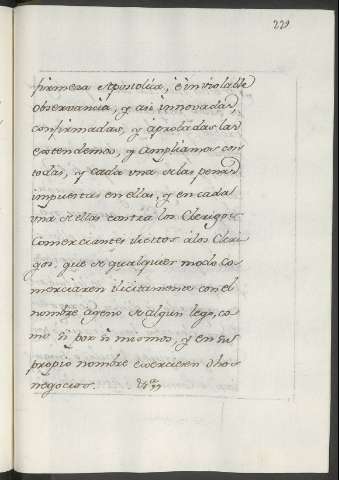 229
firmeza Apostolica, è inviolable
observancia, y asi innovadas,
confirmadas, y aprobadas las
extendemos, y Ampliamos con
todas, y cada una de las penas
impuestas en ellas, y en cada
una de ellas contra los Clerigos
Comerciantes ilicitos à los Cleri
gos que de qualquier modo co
merciaren ilicitamente con el
nombre ageno de algun lego, co
mo si por si mismos, y en su
propio nombre exercieren dhos
negocios.